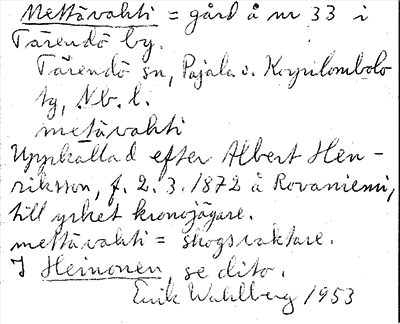 Mettävahti = gård å nr 33 i
Tärendö by.
Tärendö sn, Pajala o. Korpilombolo
tg, Nb. l.
metävahti
Uppkallad efter Albert Hen-
riksson, f. 2.3.1872 å Rovaniemi,
till yrket kronojägare.
mettävahti = skogsvaktare.
J Heinonen, se dito.
Erik Wahlberg 1953